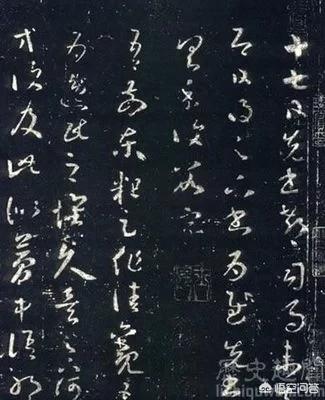 十七日先書郗司馬未
即日得足下書為慰先書
以具示復數字
吾前東粗足作佳觀吾
為逸民之懷久矣足下何
以方復及此似夢中語耶
歷史趣聞
悟空问答